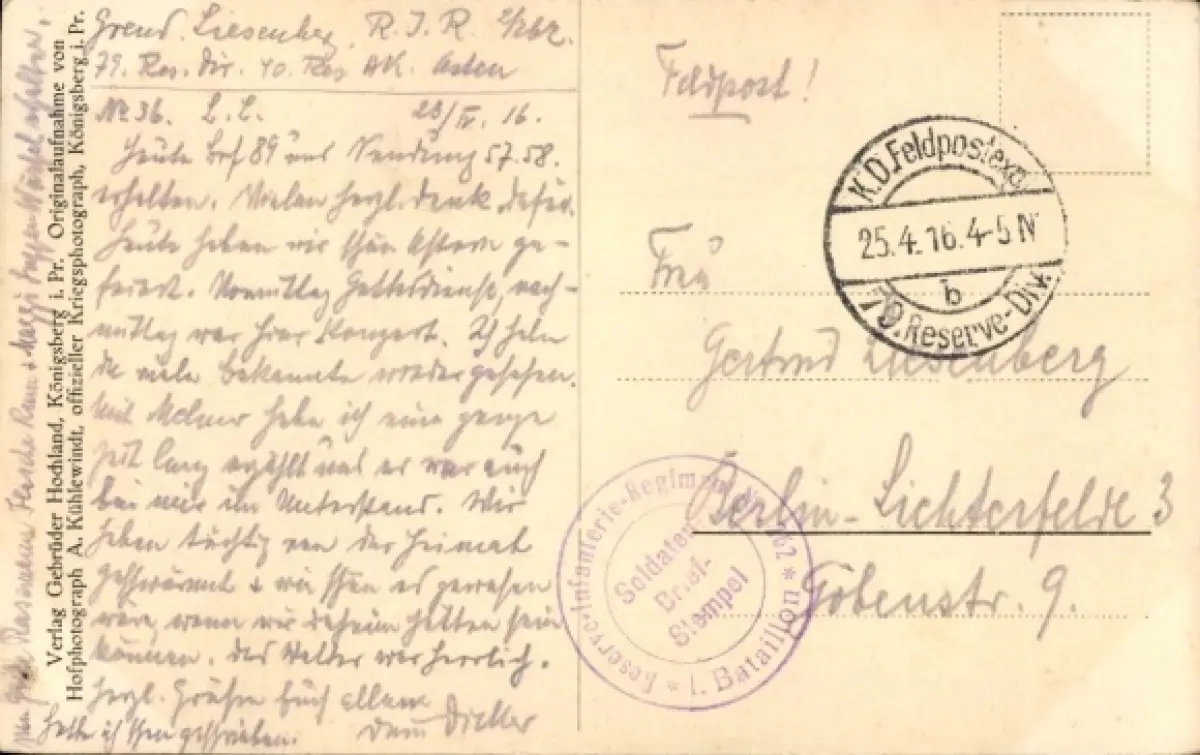 Verlag Gebrüder Hochland, Königsberg i. Pr. Originalaufnahme von
Hofphotograph A. Kühlewindt, offizieller Kriegsphotograph, Königsberg i. Pr.
Grend. Liesenberg R. I. R. 2/262.
79. Res. Div. 40. Res AK. Osten
No 36. L. L. 23/IV. 16.
Heute Brf 89 und Sendung 57. 58.
erhalten. Vielen herzl. Dank dafür.
Heute haben wir schön Ostern ge-
feiert. Vormittag Gottesdienst, nach-
mittag war hier Konzert. Ich habe
da viele Bekannte wieder gesehen.
Mit habe ich eine ganze
Zeit lang erzählt und er war auch
bei mir im Unterstand. Wir
haben tüchtig von der Heimat
geschwärmt + wie schön es gewesen
wäre, wenn wir daheim hätten sein
können. Das Wetter war herrlich.
Herzl. Grüße Euch allen
Dein
hatte ich schon geschrieben.
Feldpost!
K.D. Feldpostexp.
25.4.16. 4-5 N
b
79. Reserve-Div.
Frau
Gertrud Liesenberg
Berlin-Lichterfelde 3
Göbenstr. 9.
Reserve-Infanterie-Regiment No 262 * I. Bataillon *
Soldaten
Brief-
Stempel